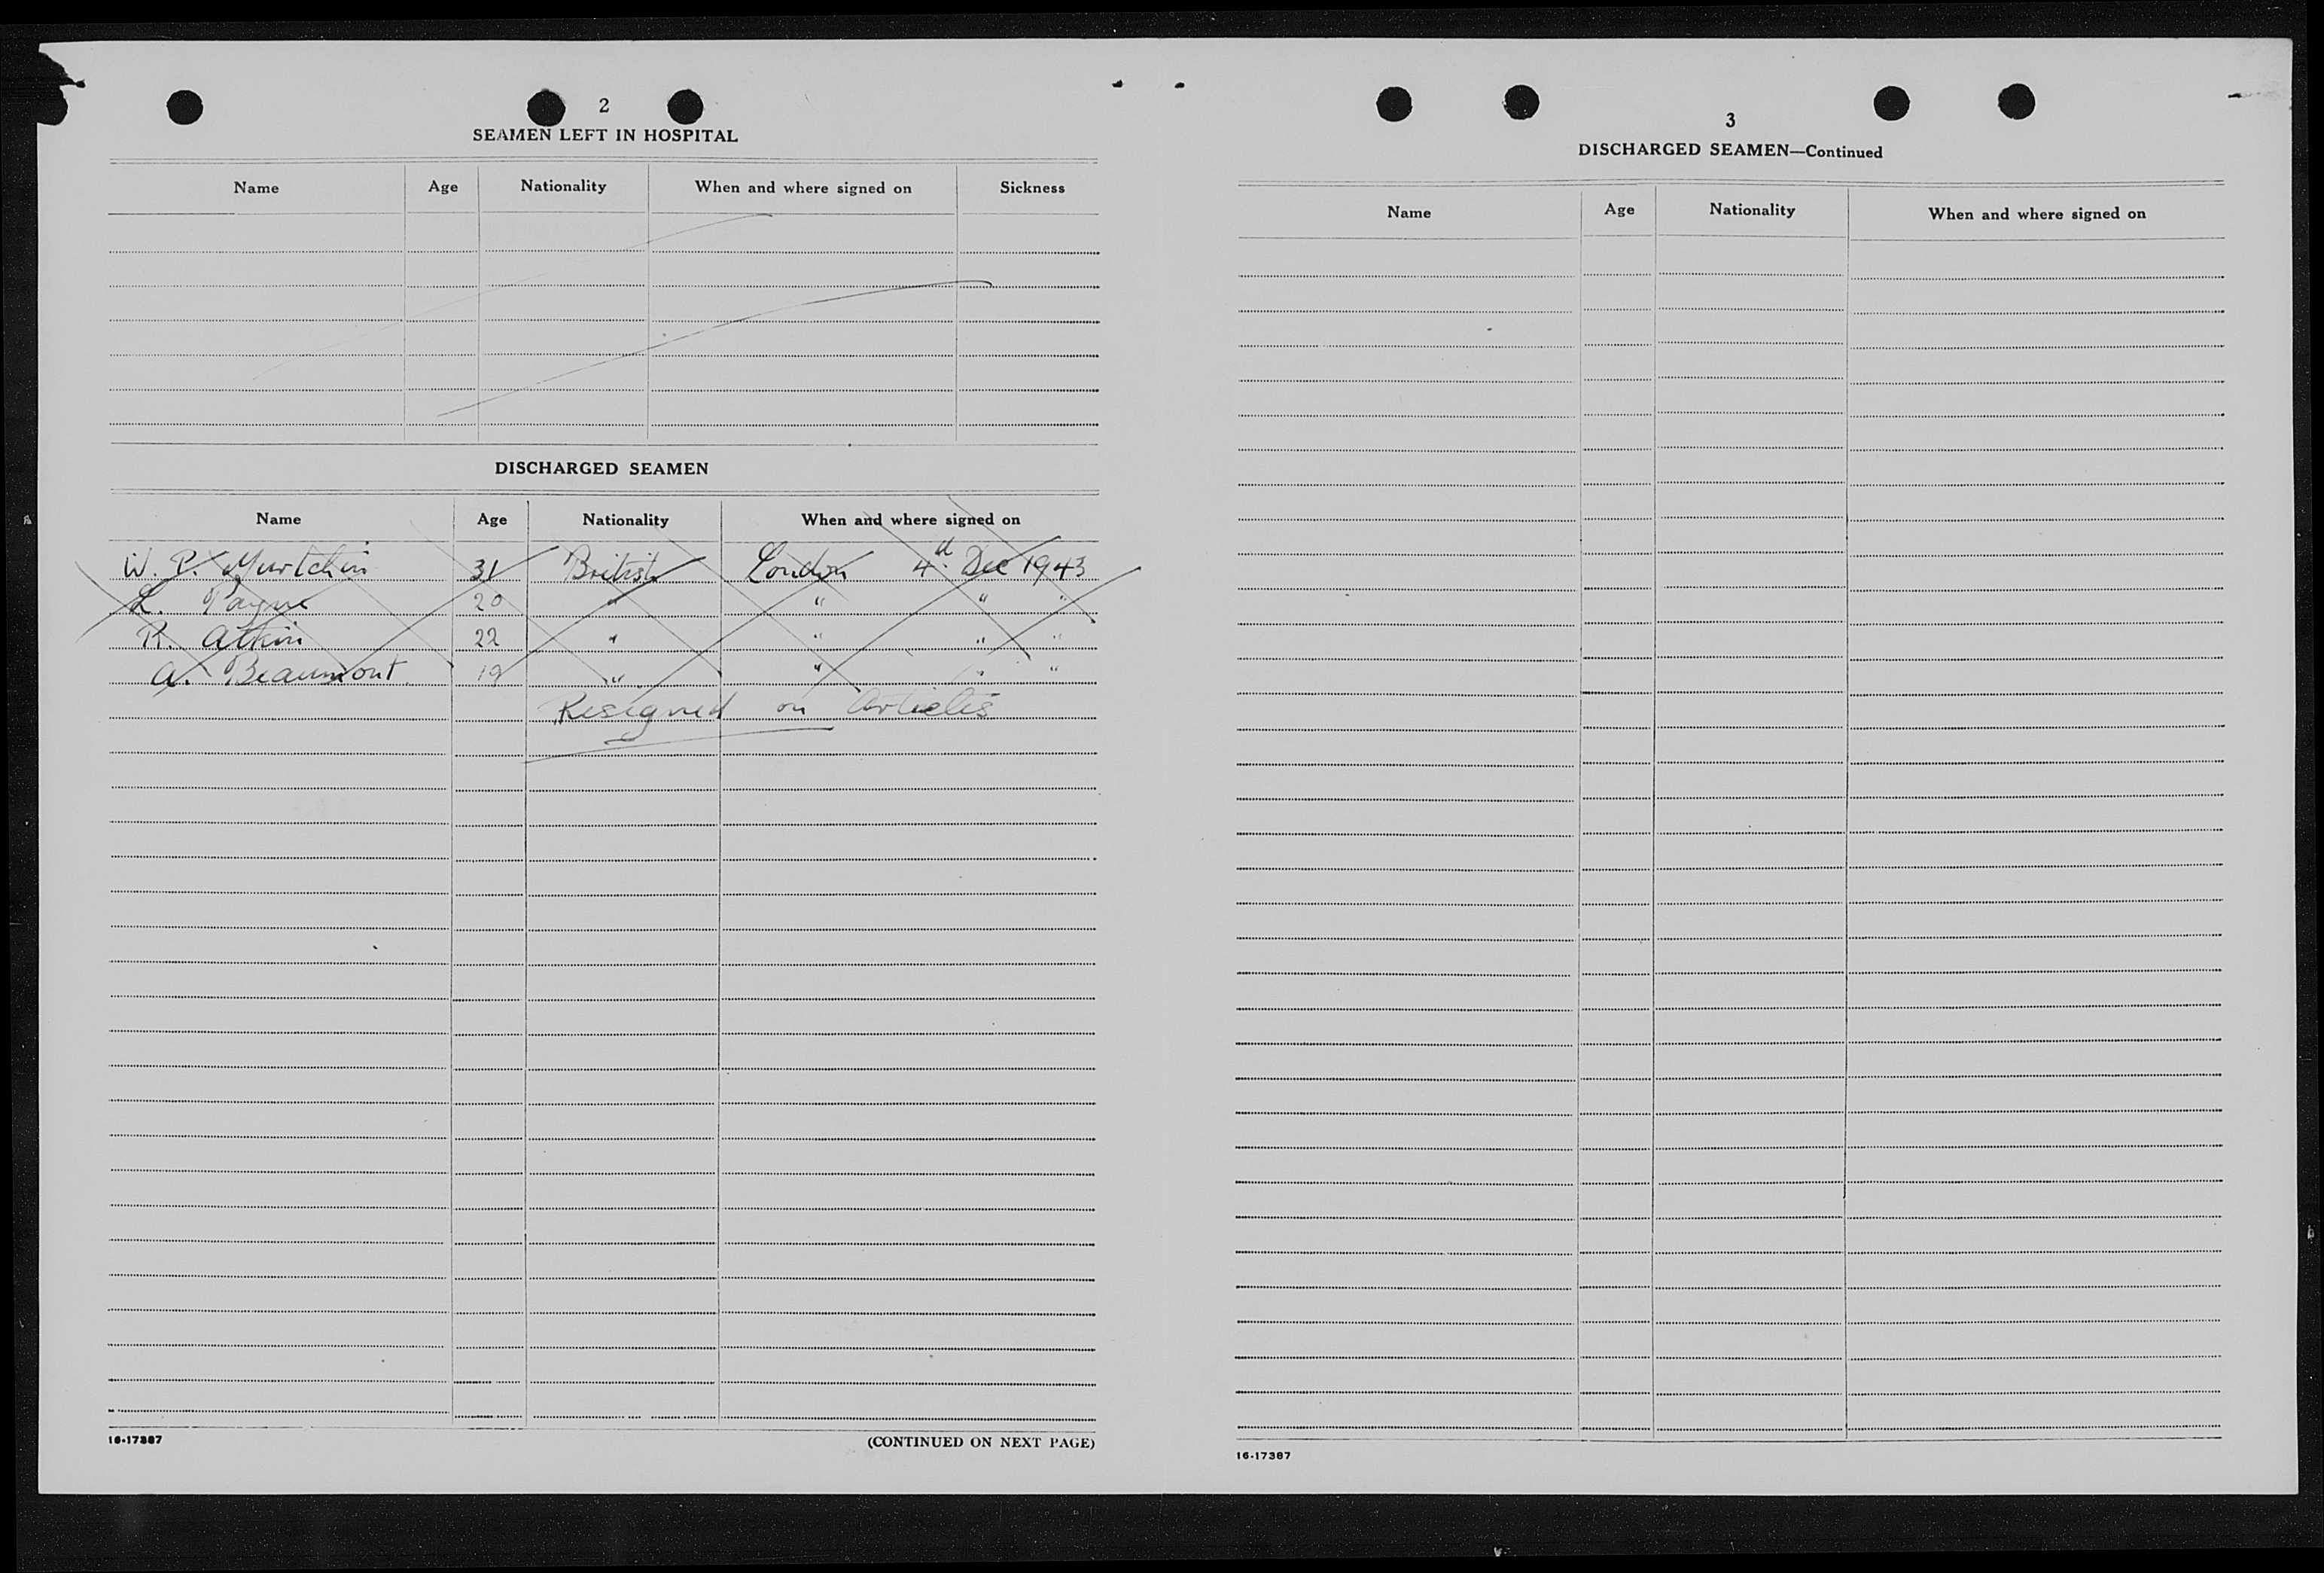 2
SEAMEN LEFT IN HOSPITAL
Name Age Nationality When and where signed on Sickness
DISCHARGED SEAMEN
Name Age Nationality When and where signed on
W. P. Murtchin 31 British London 4d. Dec 1943
L. Payne 20 " " " "
R. Atkin 22 " " " "
A. Beaumont. 19 " " " "
Resigned on Articles
16-17387 (CONTINUED ON NEXT PAGE)
3
DISCHARGED SEAMEN—Continued
Name Age Nationality When and where signed on
16-17387